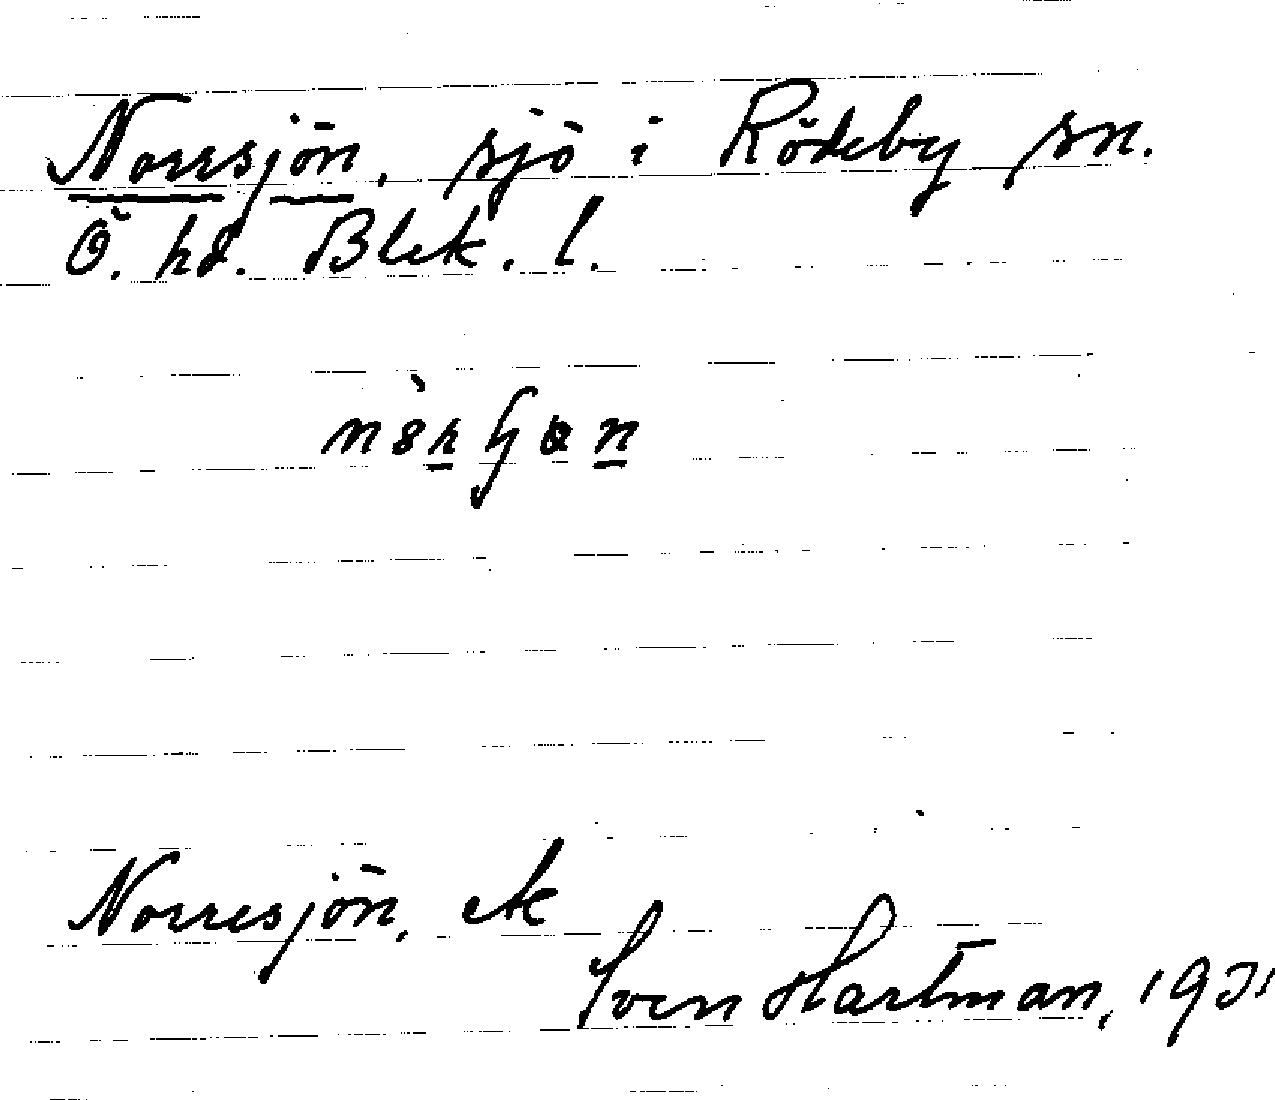 Norrsjön, sjö i Rödeby sn.
Ö. hd. Blek. l.
Norresjön, ek
Sven Hartman, 1931